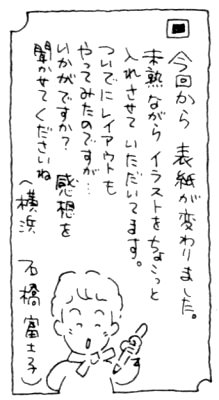 今回から 表紙が変わりました。
未熟ながら イラストをちょこっと
入れさせていただいてます。
ついでにレイアウトも
やってみたのですが…
いかがですか? 感想を
聞かせてくださいね
(横浜 石橋富士子)